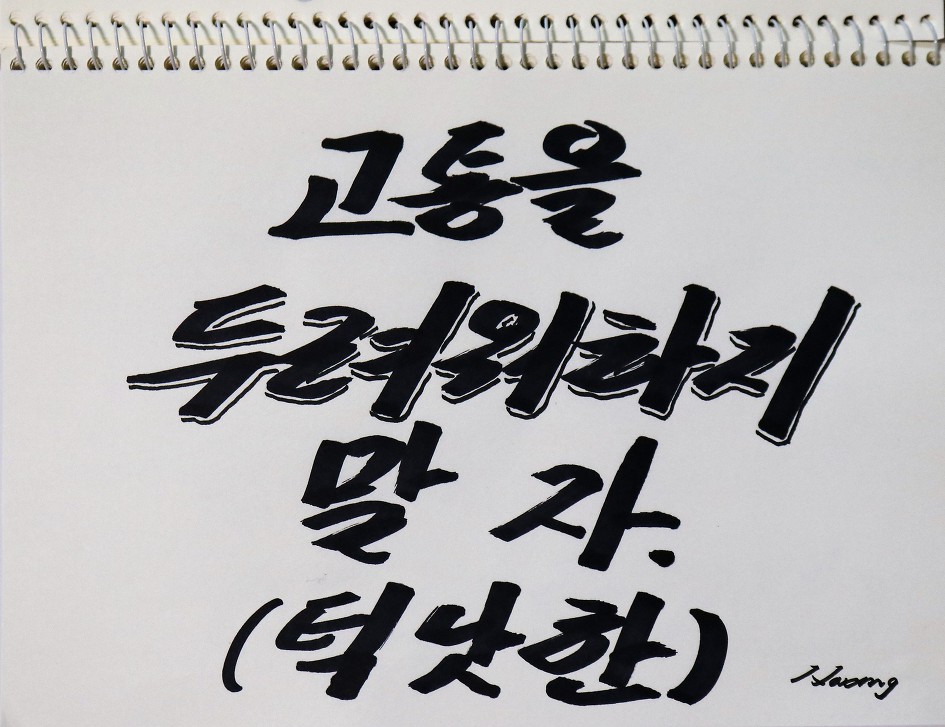 고통을
두려워하지
말 자.
(틱낫한)